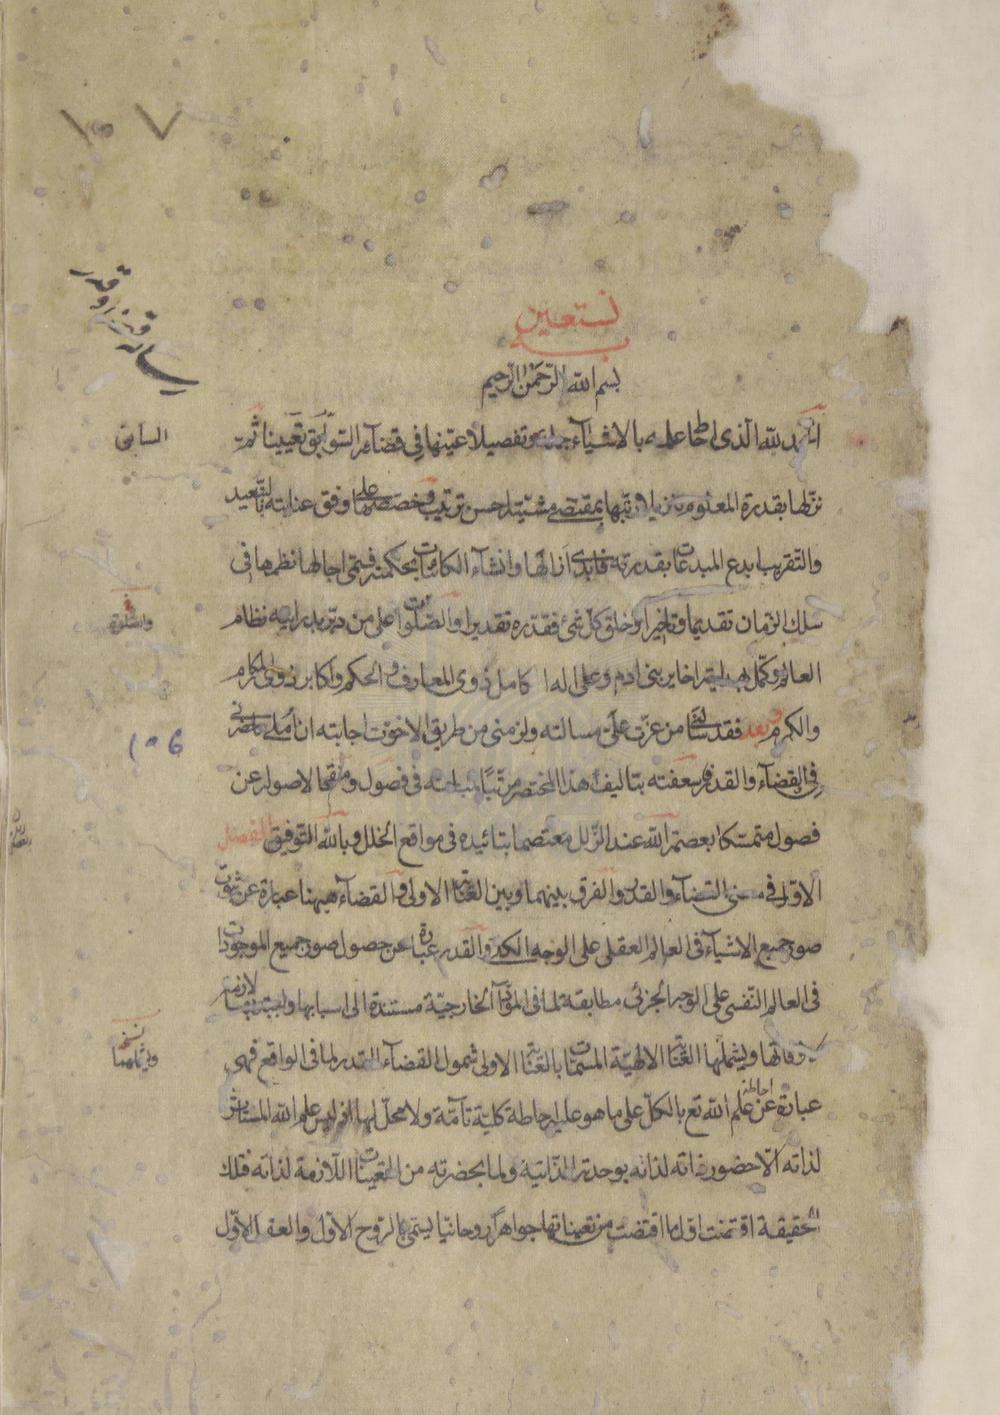 ١٠٧
رساله قضا و قدر
نستعين
به
بسم الله الرحمن الرحيم
الحمد لله الذى احاط علمه بالاشياء جملة وتفصيلا وعينها فى قضائه السوابق تعيينا ثمت
السابق
نزلها بقدرة المعلوم تنزيلا ورتبها بمقتضى مشيته احسن ترتيب وخصصها على وفق عنايته بالتبعيد
والتقريب ابدع المبدعات بقدرته فابدى انا لها وانشاء الكائنات بحكمته فسمى اجالها نظمها فى
سلك الزمان تقديما وتاخيرا وخلق كل شئ فقدره تقديرا والصلوات على من دبر بدرايه نظام
والصلوة
العالم وكمل اخاير بنى ادم وعلى اله اكامل ذوى المعارف والحكم واكابر ذوى المكارم
والكرم وبعد فقد سألنى من عزت على مسالته ولزمنى من طريق الاخوت اجابته ان املى ما حضرنى
١٠٦
فى القضاء والقدر فاسعفته بتاليف هذا المختصر مرتبا مباحثه فى فصول ومنقحا لاصوله عن
فصول متمسكا بعصمة الله عند الزلل معتصما بتائيده فى مواقع الخلل وبالله التوفيق الفصل
الاول فى معنى القضاء والقدر والفرق بينهما وبين العناية الاولى والقضاء ههنا عبارة عن ثبوت
صور جميع الاشياء فى العالم العقلى على الوجه الكلى والقدر عبارة عن حصول صور جميع الموجودات
فى العالم النفسى على الوجه الجزئى مطابقة لما فى المواد الخارجية مستندة الى اسبابها واجبة بها لازمة
لاوقاتها ويشملها العناية الالهية المسمات بالعناية الاولى شمول القضاء القدر لما فى الواقع فهى
نسخه
ويشملهما
عبارة عن احاطة علم الله تع بالكل على ما هو عليه احاطة كلية تامة ولا محل لها اذ ليس علم الله المستاثر
لذاته الا حضور ذاته لذاته بوحدته الذاتية ولما بحضرته من التعينات اللازمة لذاته فتلك
الحقيقة اقتضت اول ما اقتضت من تعيناتها جواهرا روحانيا يسمى بالروح الاول والعقل الاول